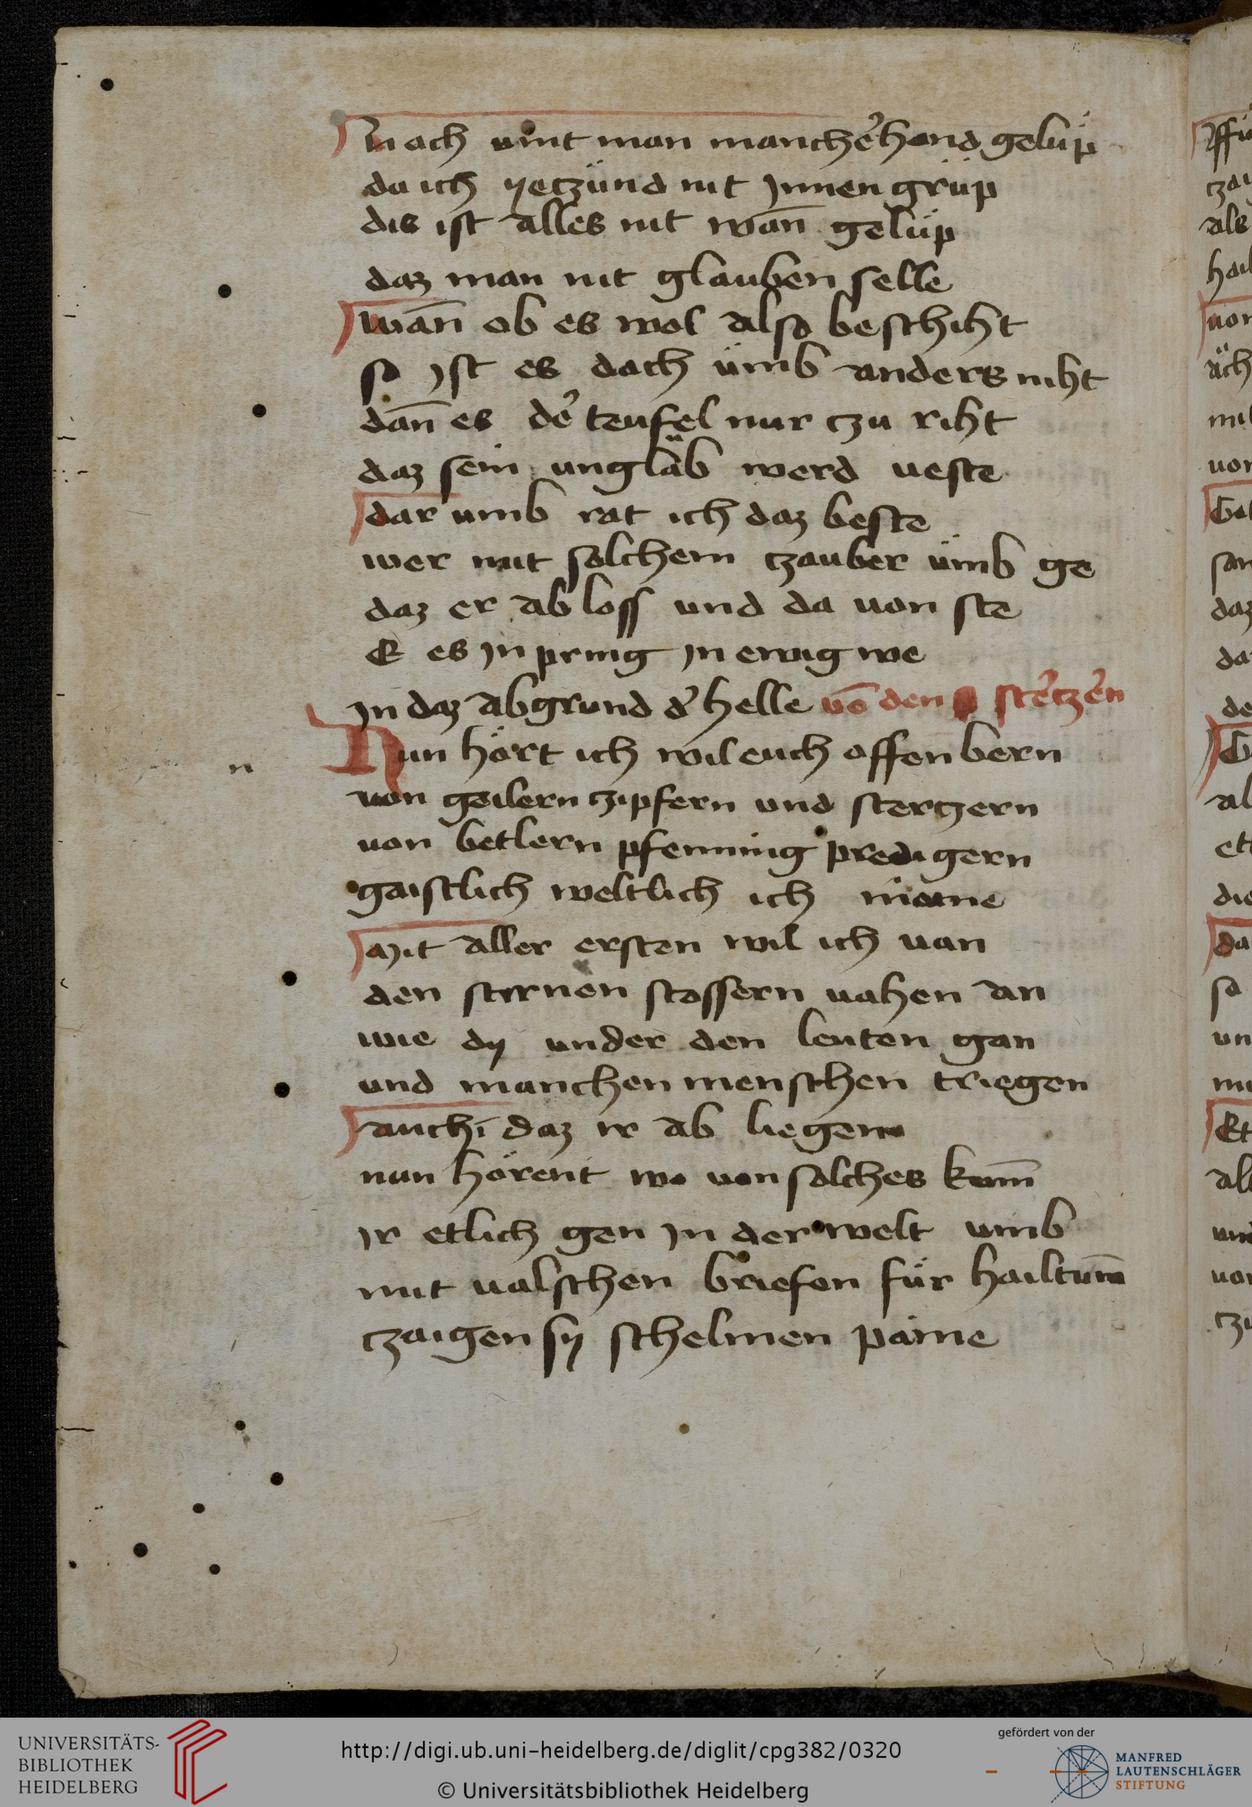 Nach vint man manche᷑hand gelüp
da ich yetzünd nit Jnnen grüp
dis ist alles nit wan̄ gelüp
daz man nit glauben selle
wan̄ ob es wol also beschiht
so Jst es doch ümb anders niht
dan̄ es de᷑ teufel nur czu riht
daz sein unglaͤb werd veste
dar umb rat ich daz beste
wer mit solchem czauber ümb ge
daz er ab loss und da von ste
E es Jn pring Jn ewig we
Jn daz abgrund d᷑ helle vō den ste᷑tze᷑n
Nun hört ich wil euch offenbern
n
von geilern czipfern und stertzern
von betlern pfenning predigern
gaistlich weltlich ich maine
Mit aller ersten wil ich van
den sternen stossern vahen an
wie dy under den leuten gan
und manchen menschen triegen
daz ir ab liegen
nun hörent wo von solches kum̄
Jr etlich gen Jn der welt umb
mit valschen briefen für hailtum̄
czaigen sy schelmen paine
UNIVERSITÄTS-
BIBLIOTHEK
HEIDELBERG
http://digi.ub.uni-heidelberg.de/diglit/cpg382/0320
© Universitätsbibliothek Heidelberg
gefördert von der
MANFRED
LAUTENSCHLÄGER
STIFTUNG